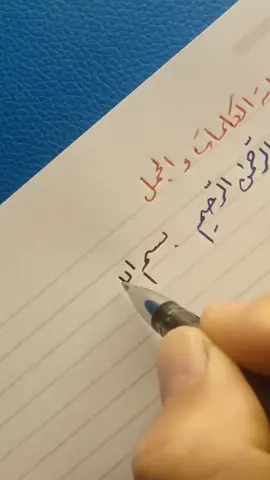 الكلمات و الجمل
الرحمٰن الرّحيم
بسم ال